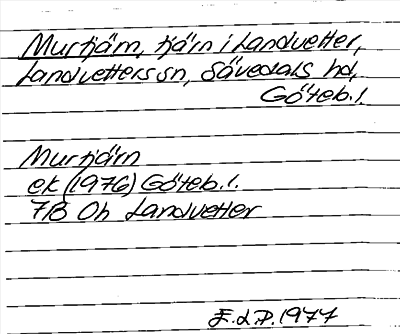 Murtjärn, tjärn i Landvetter,
Landvetters sn, Sävedals hd,
Göteb. l.
Murtjärn
ek (1976) Göteb. l.
7B Oh Landvetter
E.L.P. 1977